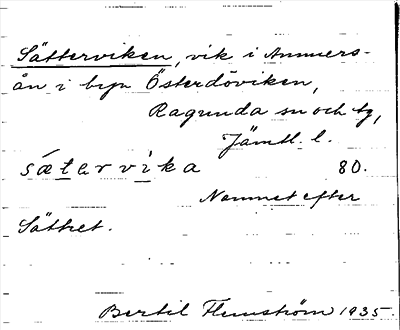 Sätterviken, vik i Ammers-
ån i byn Österdöviken,
Ragunda sn och tg,
Jämtl. l.
sǽtervika 80.
Namnet efter
Sättret.
Bertil Flemström 1935.